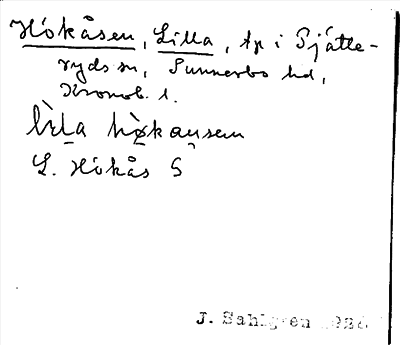 Hökåsen, Lilla, tp i Pjätte-
ryds sn, Sunnerbo hd,
Kronob. l.
lìla hø̀kaųsem
L. Hökås S
J. Sahlgren 1926